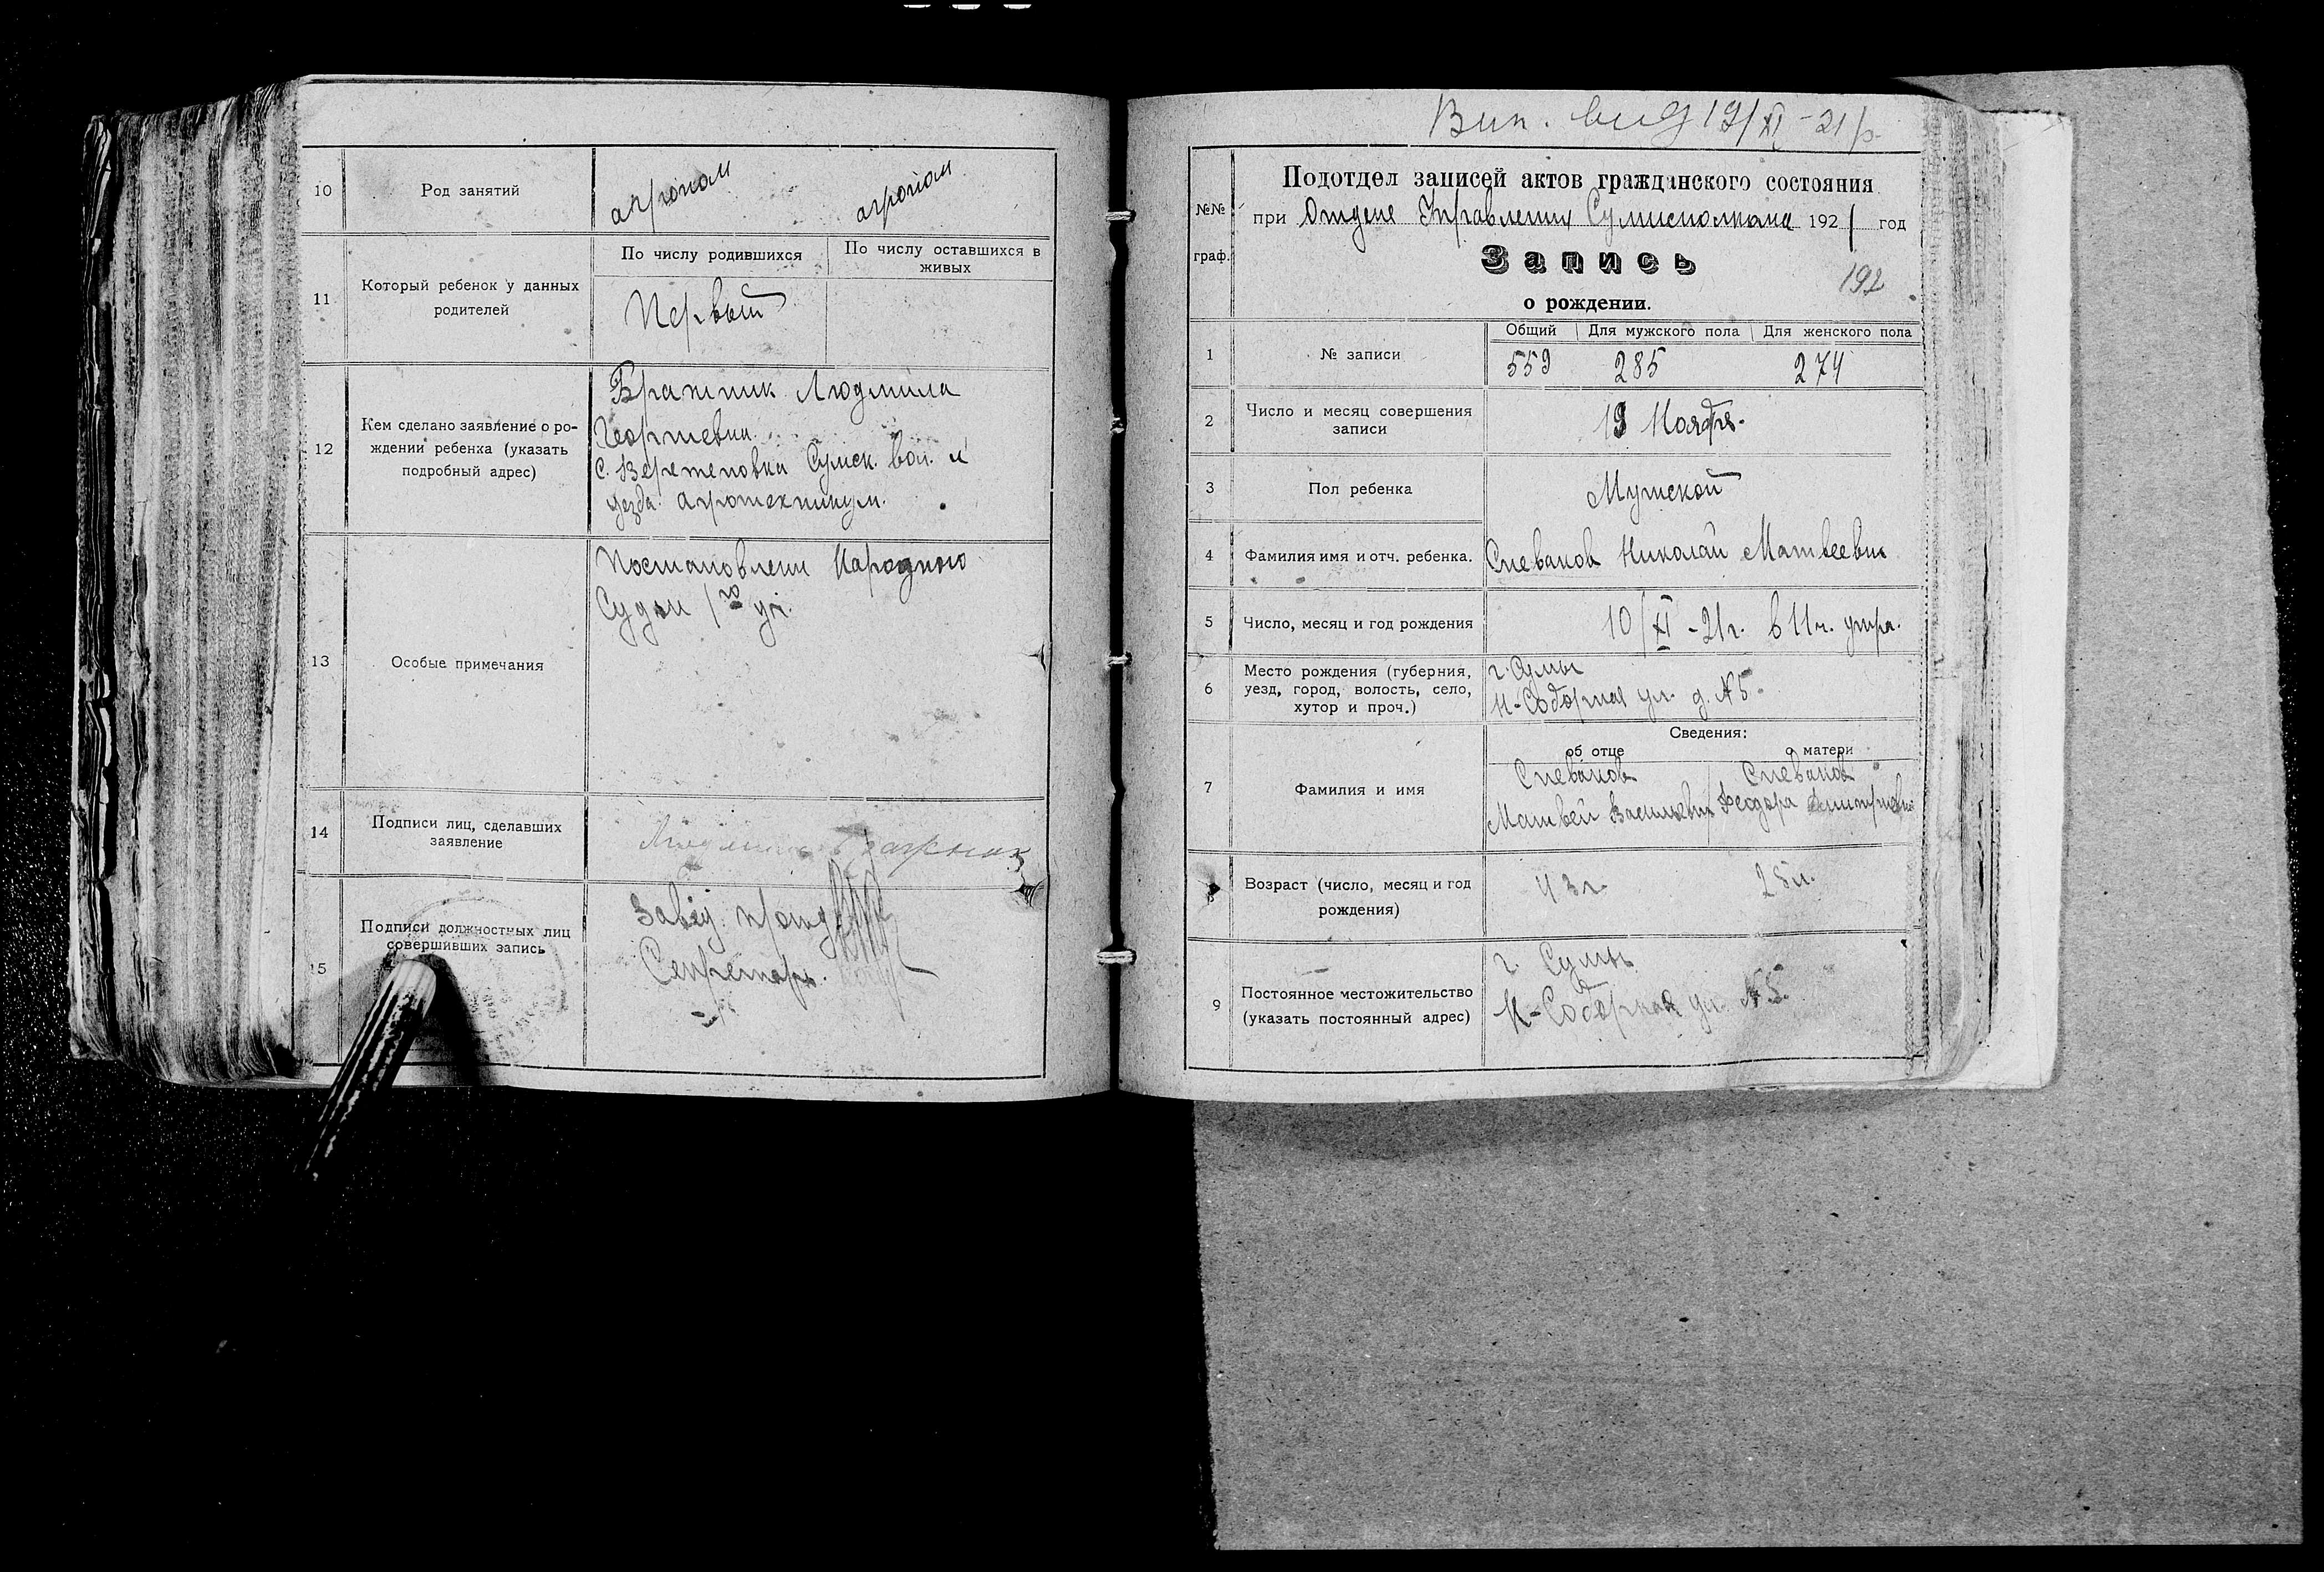 10
Род занятий
агроном
агроном
11
Который ребенок у данных
родителей
По числу родившихся
По числу оставшихся в
живых
Первый
12
Кем сделано заявление о ро-
ждении ребенка (указать
подробный адрес)
Бражник Людмила
Георгиевна
с. Веретеновка Сумск. вол. и
уезда агротехникум.
13
Особые примечания
Постановлени Народного
Судьи 1го уч.
14
Подписи лиц, сделавших
заявление
Людмила Бражник
15
Подписи должностных лиц
совершивших запись
Завед.
Секретарь.
Вип. вид 19/XI-21 р.
№№
граф.
Подотдел записей актов гражданского состояния
при Отделе Управления Сумисполкома 1921 год
Запись
192
о рождении.
1
№ записи
Общий
Для мужского пола
Для женского пола
559
285
274
2
Число и месяц совершения
записи
19 Ноября.
3
Пол ребенка
Мужской
4
Фамилия имя и отч. ребенка.
Спеваков Николай Матвеевич
5
Число, месяц и год рождения
10/XI-21г. в 11ч. утра.
6
Место рождения (губерния,
уезд, город, волость, село,
хутор и проч.)
г. Сумы
Н-Соборная ул. д. №5.
Сведения:
об отце
о матери
7
Фамилия и имя
Спеваков
Матвей Васильевич
Спеваков
Феодора Дмитриевна
8
Возраст (число, месяц и год
рождения)
43 г.
28 л.
9
Постоянное местожительство
(указать постоянный адрес)
г. Сумы
Н-Соборная ул. №5.